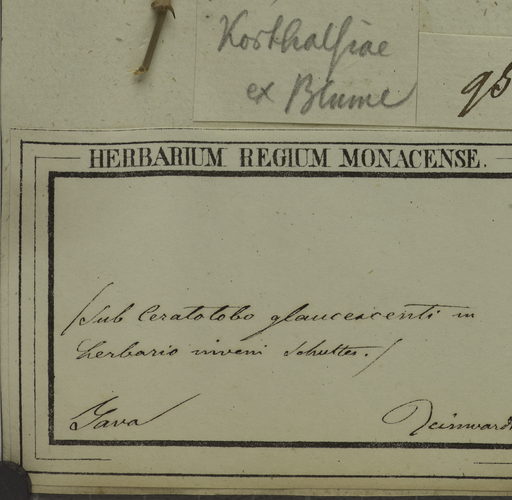 Korthalsiae
ex Blume
95
HERBARIUM REGIUM MONACENSE.
/Sub Ceratolobo glaucescenti in
herbario inveni Schultes./
Java
Reinwardt